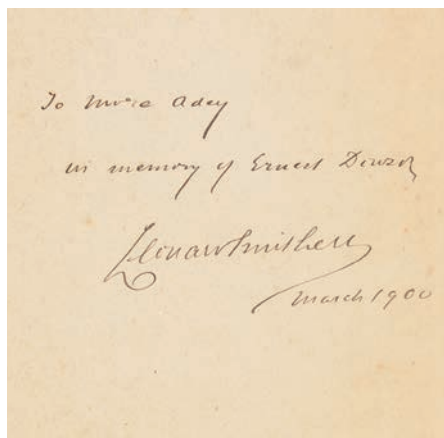 To More Adey
in memory of Ernest Dowson
Leonard Smithers
March 1900